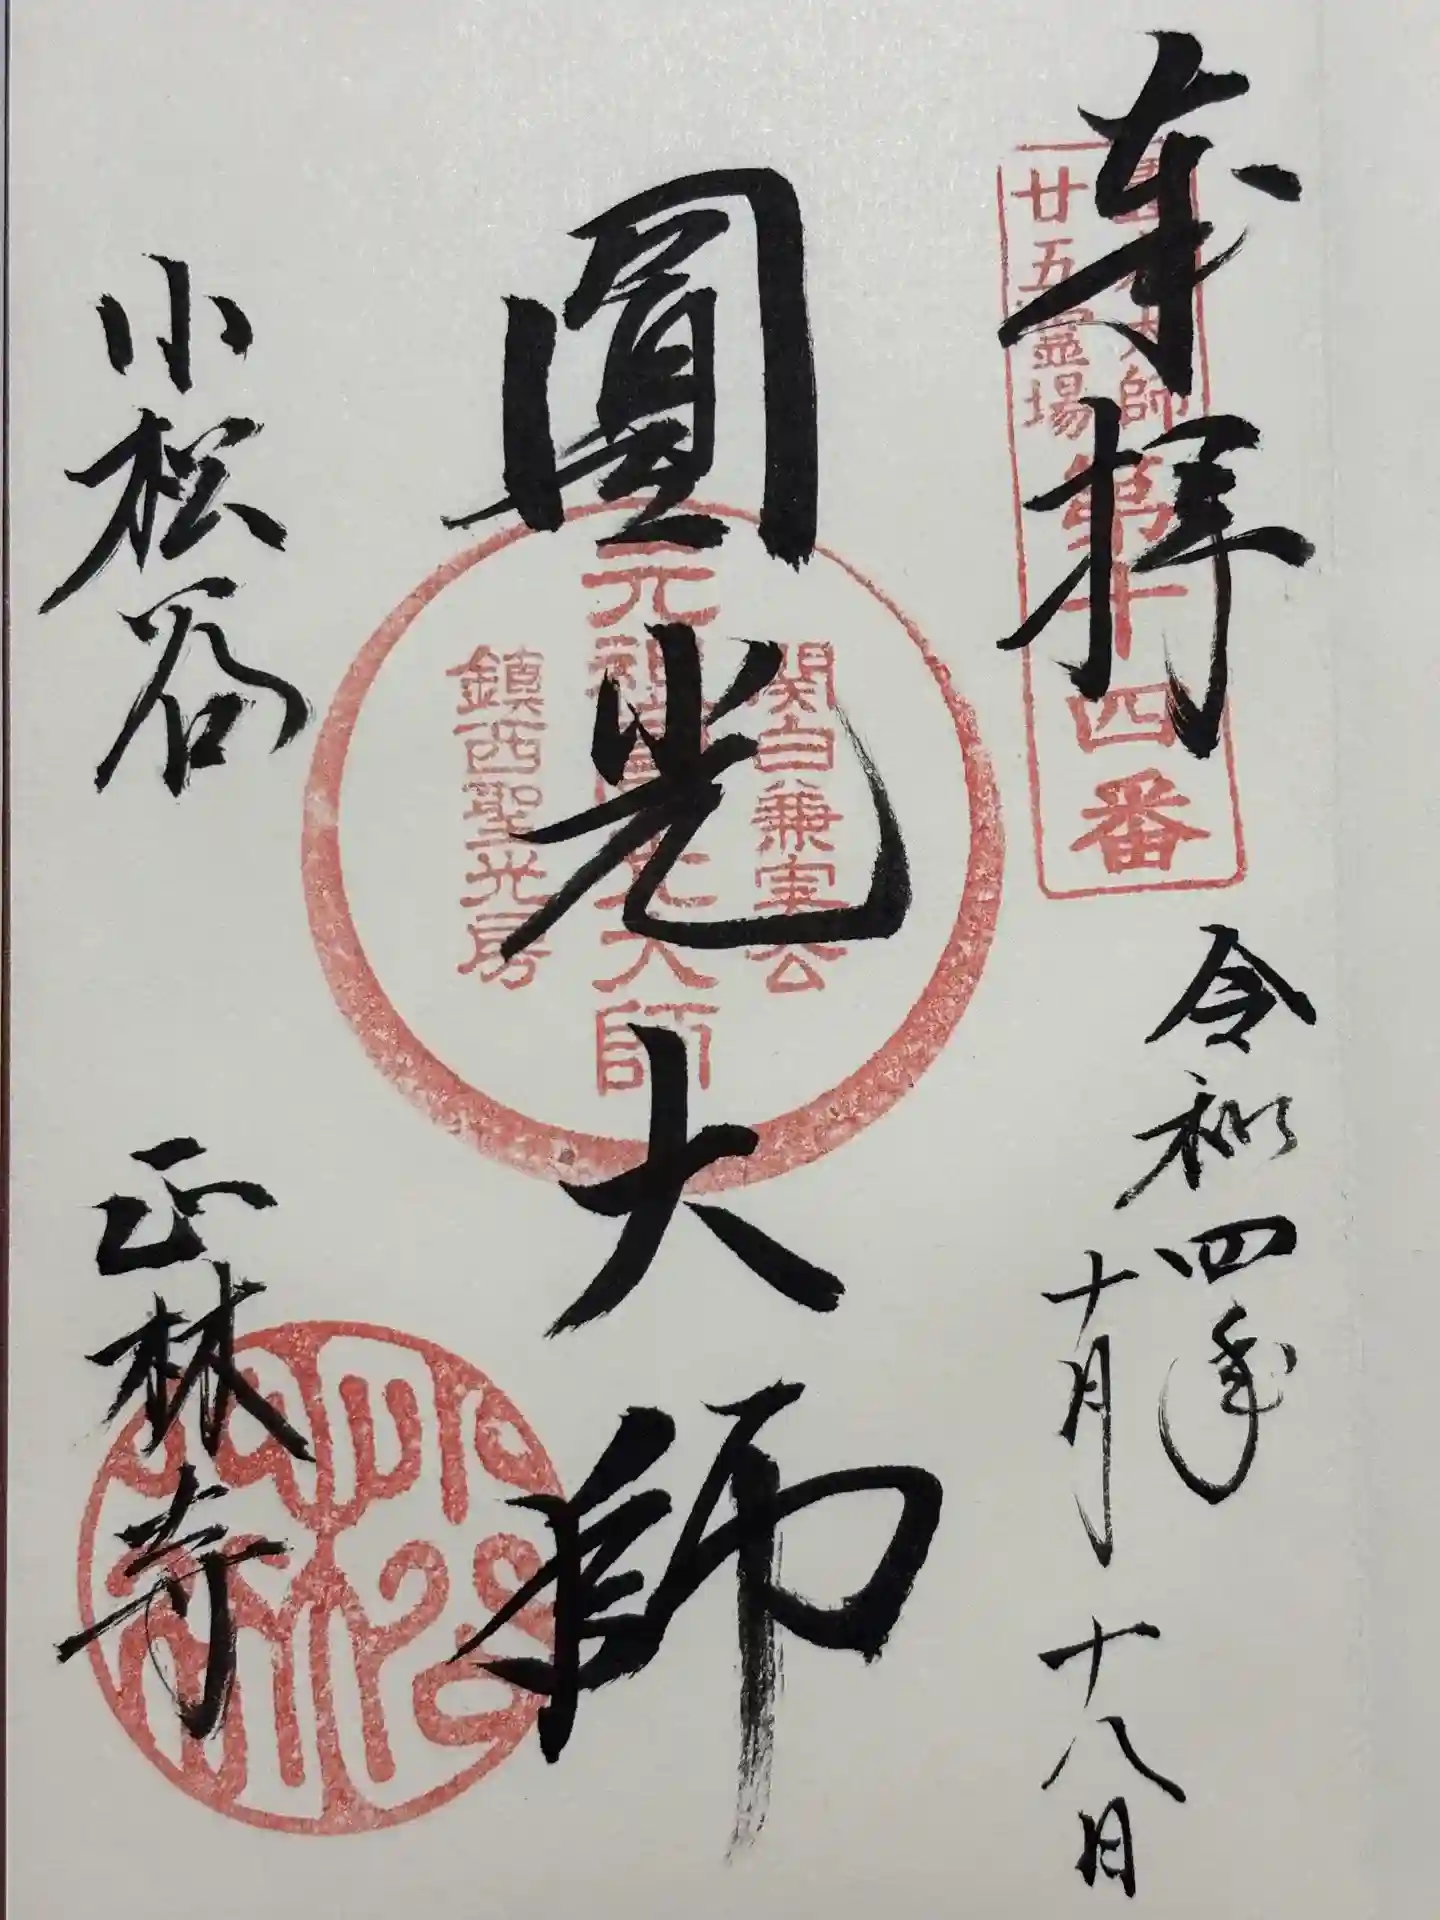 奉拝
廿五霊場
第十四番
令和四年
十月十八日
圓光大師
関白兼実公
元祖圓光大師
鎮西聖光房
小松谷
正林寺